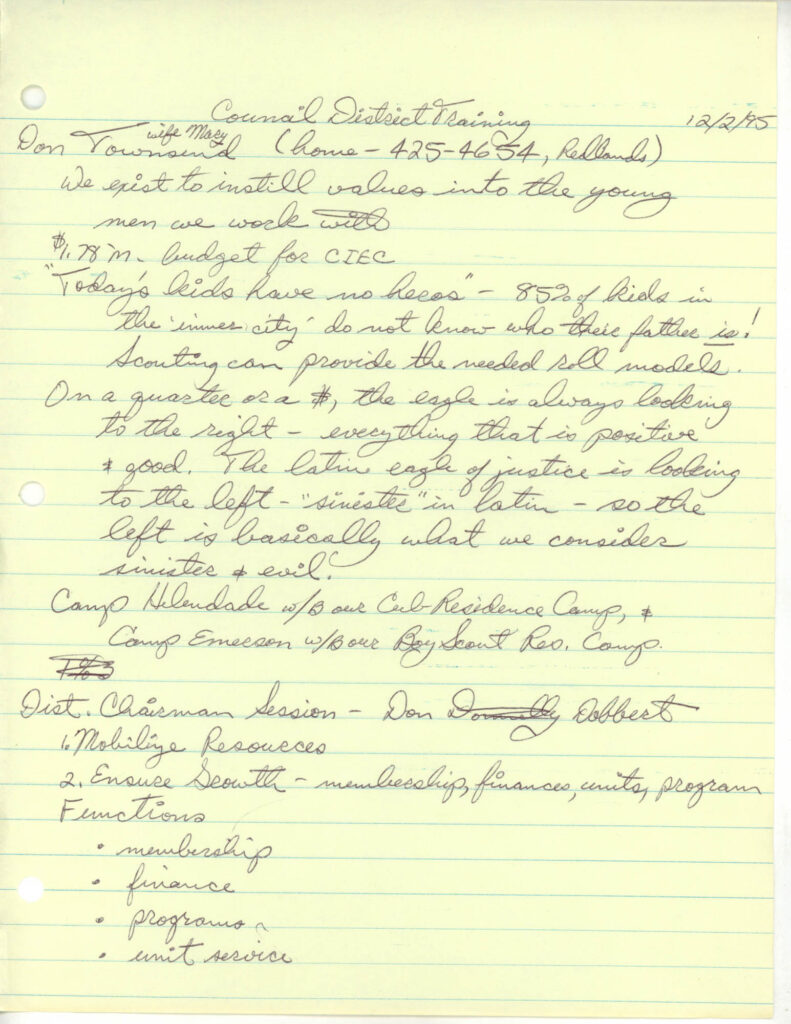 Council District Training 12/2/95
wife Macy
Don Townsend (home - 425-4654, Redlands)
We exist to instill values into the young
men we work with
$1.78 m. budget for CIEC
"Today's kids have no heros" - 85% of kids in
the 'inner city' do not know who their father is!
Scouting can provide the needed roll models.
On a quarter or a $, the eagle is always looking
to the right - everything that is positive
& good. The latin eagle of justice is looking
to the left - "sinister" in latin - so the
left is basically what we consider
sinister & evil!
Camp Helendade w/B our Cub Residence Camp, &
Camp Emerson w/B our Boy Scout Res. Camp.
Dist. Chairman Session - Don Donnelly Dobbert
1. Mobilize Resources
2. Ensure Growth - membership, finances, units, program
Functions
• membership
• finance
• programs
• unit service